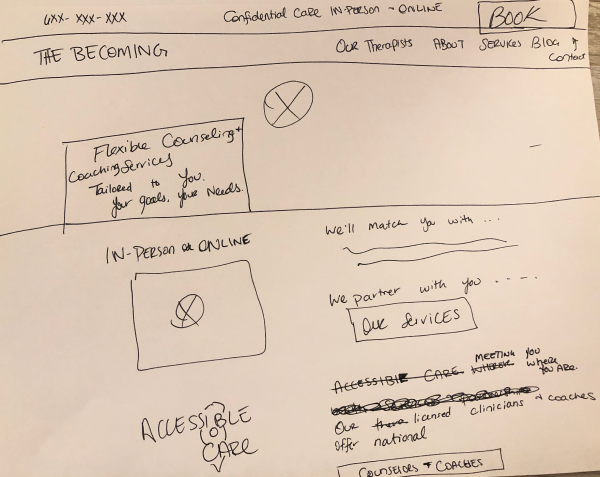 6XX- XXX- XXX
Confidential Care IN-PERSON - ONLINE
BOOK
THE BECOMING
Our Therapists ABOUT SERVICES BLOG
Contact
Flexible Counseling +
Coaching Services
Tailored to you.
your goals, your Needs.
IN-PERSON or ONLINE
We'll match you with ...
We partner with you ....
OUR SERVICES
ACCESSIBLE CARE MEETING YOU
WHERE
YOU ARE.
Our licensed clinicians + coaches
offer national
COUNSELORS + COACHES
ACCESSIBLE
CARE